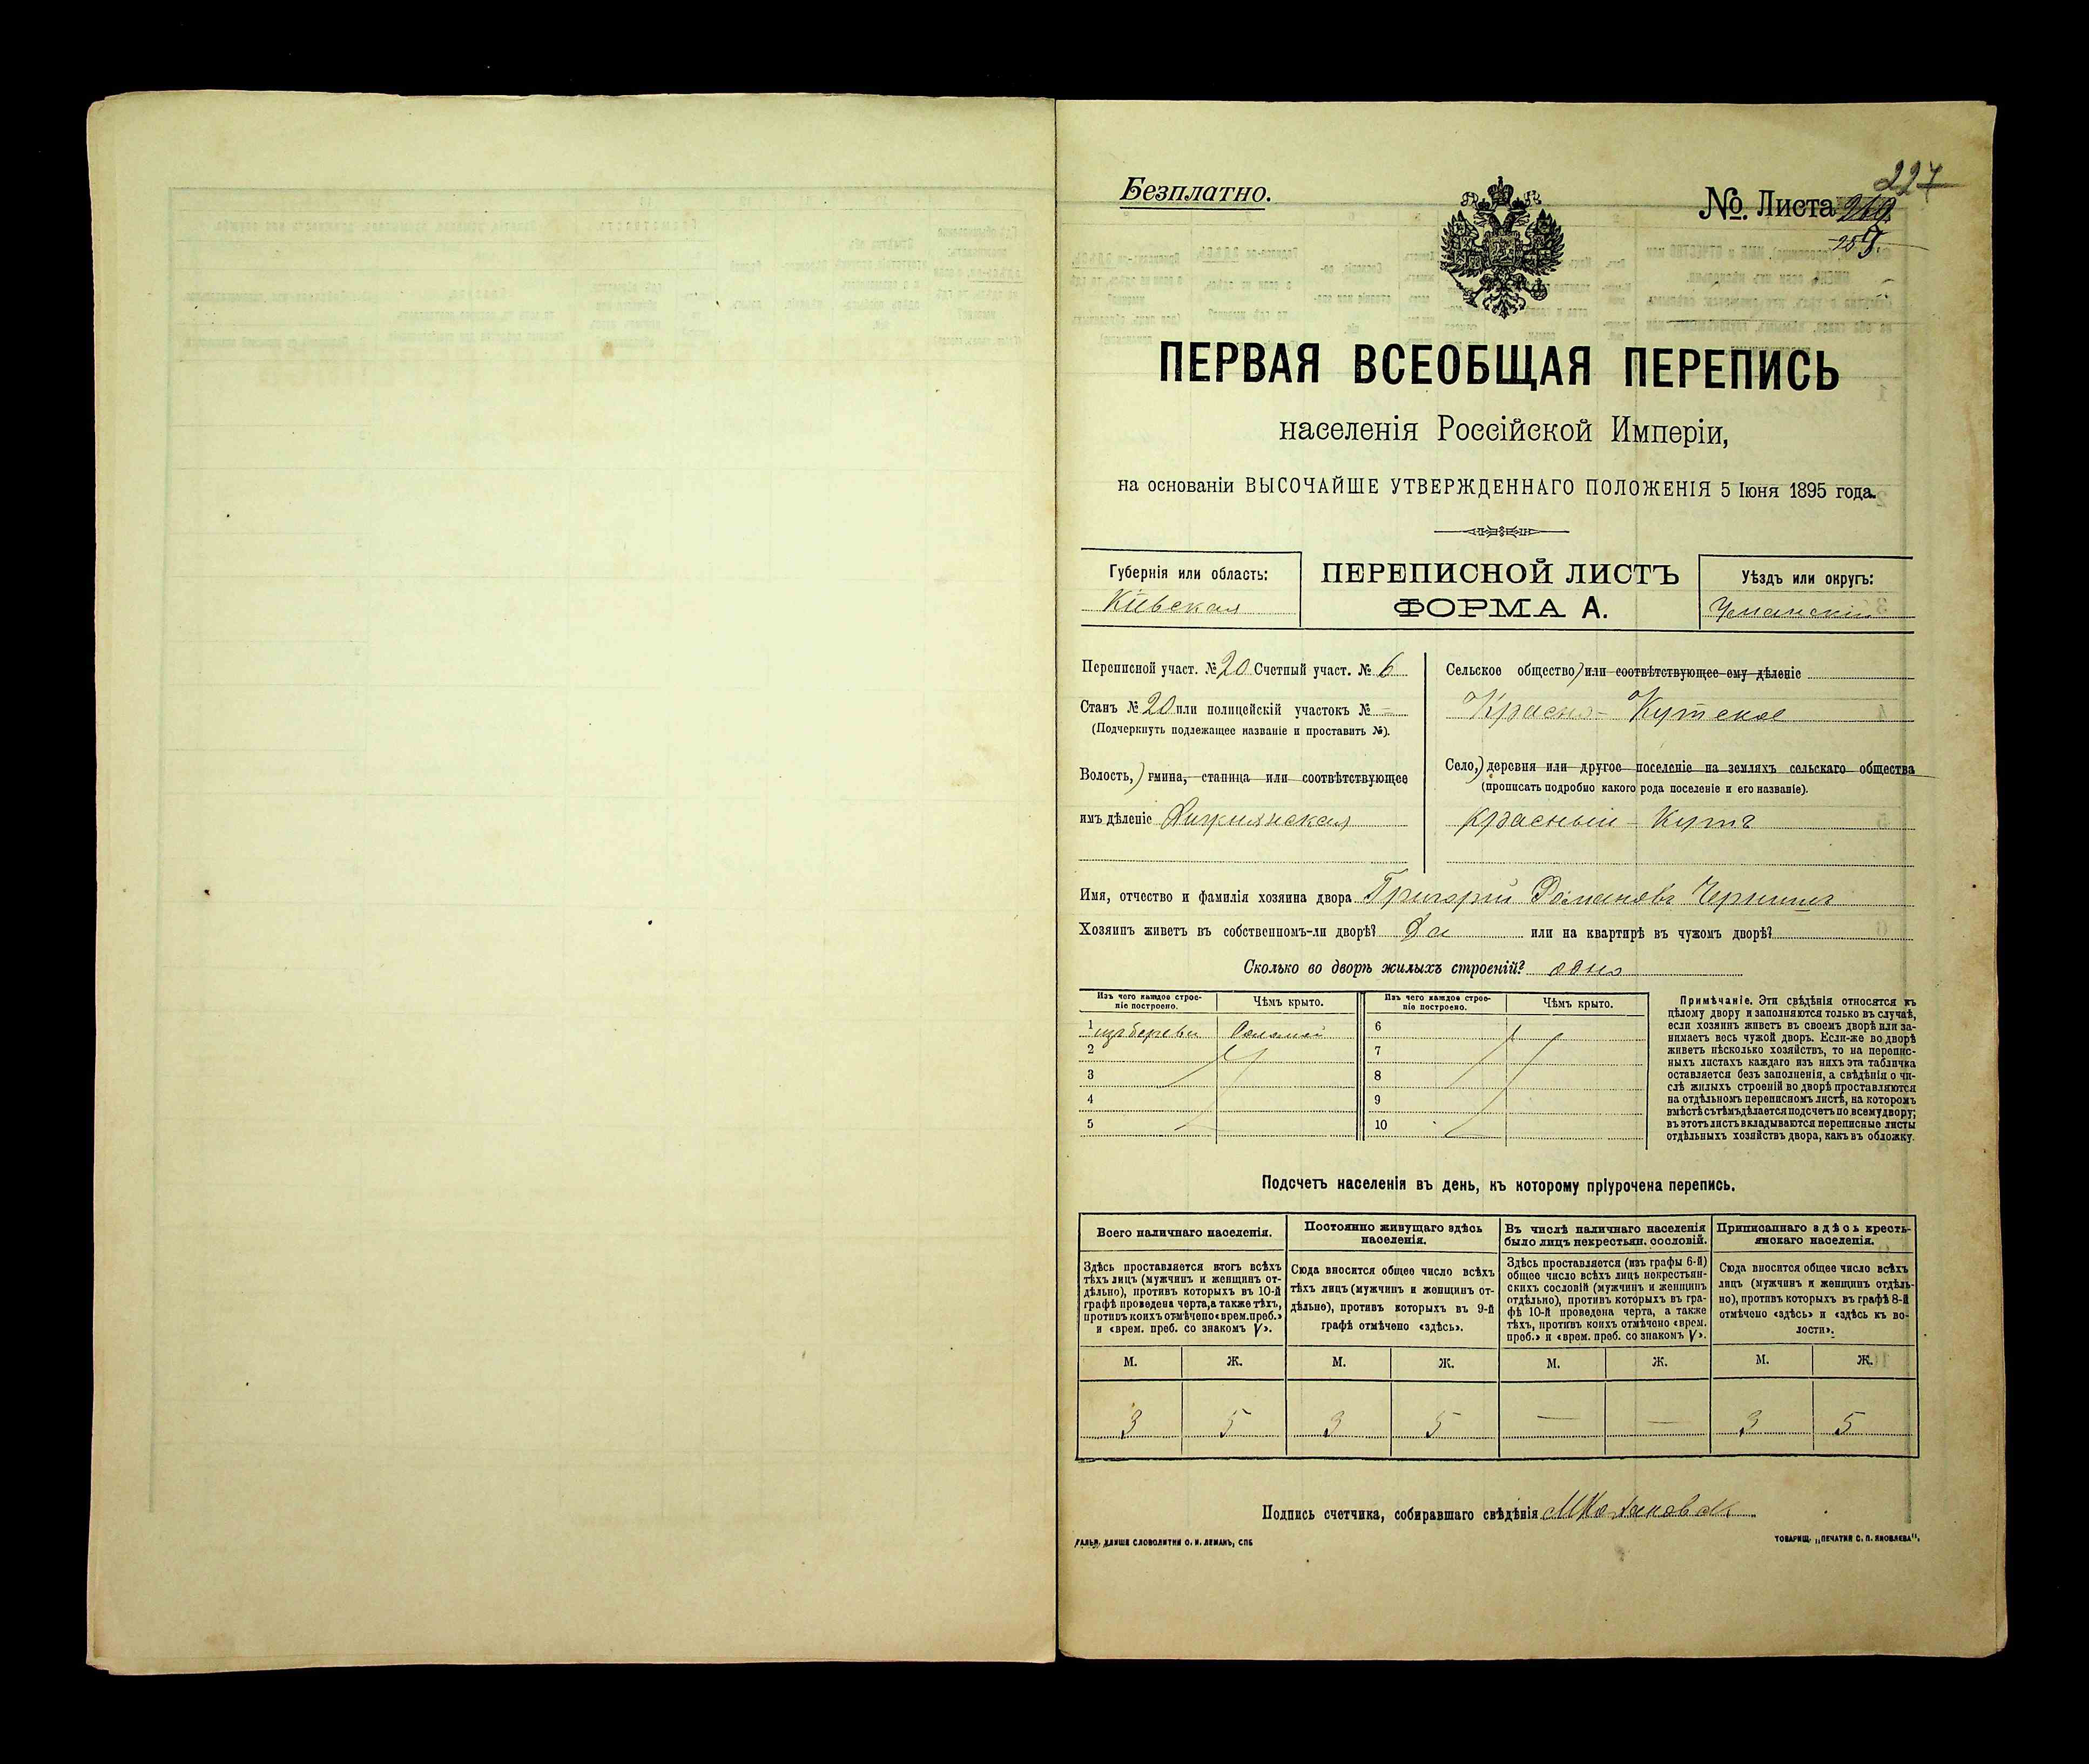 227
Безплатно.
№. Листа
ПЕРВАЯ ВСЕОБЩАЯ ПЕРЕПИСЬ
населенія Россійской Имперіи,
на основаніи ВЫСОЧАЙШЕ УТВЕРЖДЕННАГО ПОЛОЖЕНІЯ 5 Іюня 1895 года.
Губернія или область:
Кіевская
ПЕРЕПИСНОЙ ЛИСТЪ
ФОРМА А.
Уѣздъ или округъ:
Уманскій
Переписной участ. № 20 Счетный участ. № 6
Станъ № 20 или полицейскій участокъ № –
(Подчеркнуть подлежащее названіе и проставить №).
Волость,) гмина, станица или соотвѣтствующее
имъ дѣленіе
Сельское общество) или соотвѣтствующее ему дѣленіе
Красно-Кутское
Село,) деревня или другое поселеніе на земляхъ сельскаго общества
(прописать подробно какого рода поселеніе и его названіе).
Красный-Кутъ
Имя, отчество и фамилія хозяина двора Григорій Романовъ
Хозяинъ живетъ въ собственномъ-ли дворѣ? Да или на квартирѣ въ чужомъ дворѣ?
Сколько во дворѣ жилыхъ строеній? одно
Изъ чего каждое строе-
ніе построено.
Чѣмъ крыто.
Изъ чего каждое строе-
ніе построено.
Чѣмъ крыто.
1 изъ дерева Соломой
2
3
4
5
6
7
8
9
10
Примѣчаніе. Эти свѣдѣнія относятся къ
цѣлому двору и заполняются только въ случаѣ,
если хозяинъ живетъ въ своемъ дворѣ или за-
нимаетъ весь чужой дворъ. Если-же во дворѣ
живетъ нѣсколько хозяйствъ, то на перепис-
ныхъ листахъ каждаго изъ нихъ эта табличка
оставляется безъ заполненія, а свѣдѣнія о чи-
слѣ жилыхъ строеній во дворѣ проставляются
на отдѣльномъ переписномъ листѣ, на которомъ
вмѣстѣ съ тѣмъ дѣлается подсчетъ по всему двору;
въ этотъ листъ вкладываются переписные листы
отдѣльныхъ хозяйствъ двора, какъ въ обложку.
Подсчетъ населенія въ день, къ которому пріурочена перепись.
Всего наличнаго населенія.
Постоянно живущаго здѣсь
населенія.
Въ числѣ наличнаго населенія
было лицъ некрестьян. сословій.
Приписаннаго здѣсь кресть-
янскаго населенія.
Здѣсь проставляется итогъ всѣхъ
тѣхъ лицъ (мужчинъ и женщинъ от-
дѣльно), противъ которыхъ въ 10-й
графѣ проведена черта, а также тѣхъ,
противъ коихъ отмѣчено «врем. преб.»
и «врем. преб. со знакомъ V».
Сюда вносится общее число всѣхъ
тѣхъ лицъ (мужчинъ и женщинъ от-
дѣльно), противъ которыхъ въ 9-й
графѣ отмѣчено «здѣсь».
Здѣсь проставляется (изъ графы 6-й)
общее число всѣхъ лицъ некрестьян-
скихъ сословій (мужчинъ и женщинъ
отдѣльно), противъ которыхъ въ гра-
фѣ 10-й проведена черта, а также
тѣхъ, противъ коихъ отмѣчено «врем.
преб.» и «врем. преб. со знакомъ V».
Сюда вносится общее число всѣхъ
лицъ (мужчинъ и женщинъ отдѣль-
но), противъ которыхъ въ графѣ 8-й
отмѣчено «здѣсь» и «здѣсь къ во-
лости».
М. Ж. М. Ж. М. Ж. М. Ж.
3 5 3 5 — — 3 5
Подпись счетчика, собиравшаго свѣдѣнія
ГАЛЬВ. КЛИШЕ СЛОВОЛИТНИ О. И. ЛЕМАНЪ, СПБ
ТОВАРИЩ. „ПЕЧАТНЯ С. П. ЯКОВЛЕВА“,